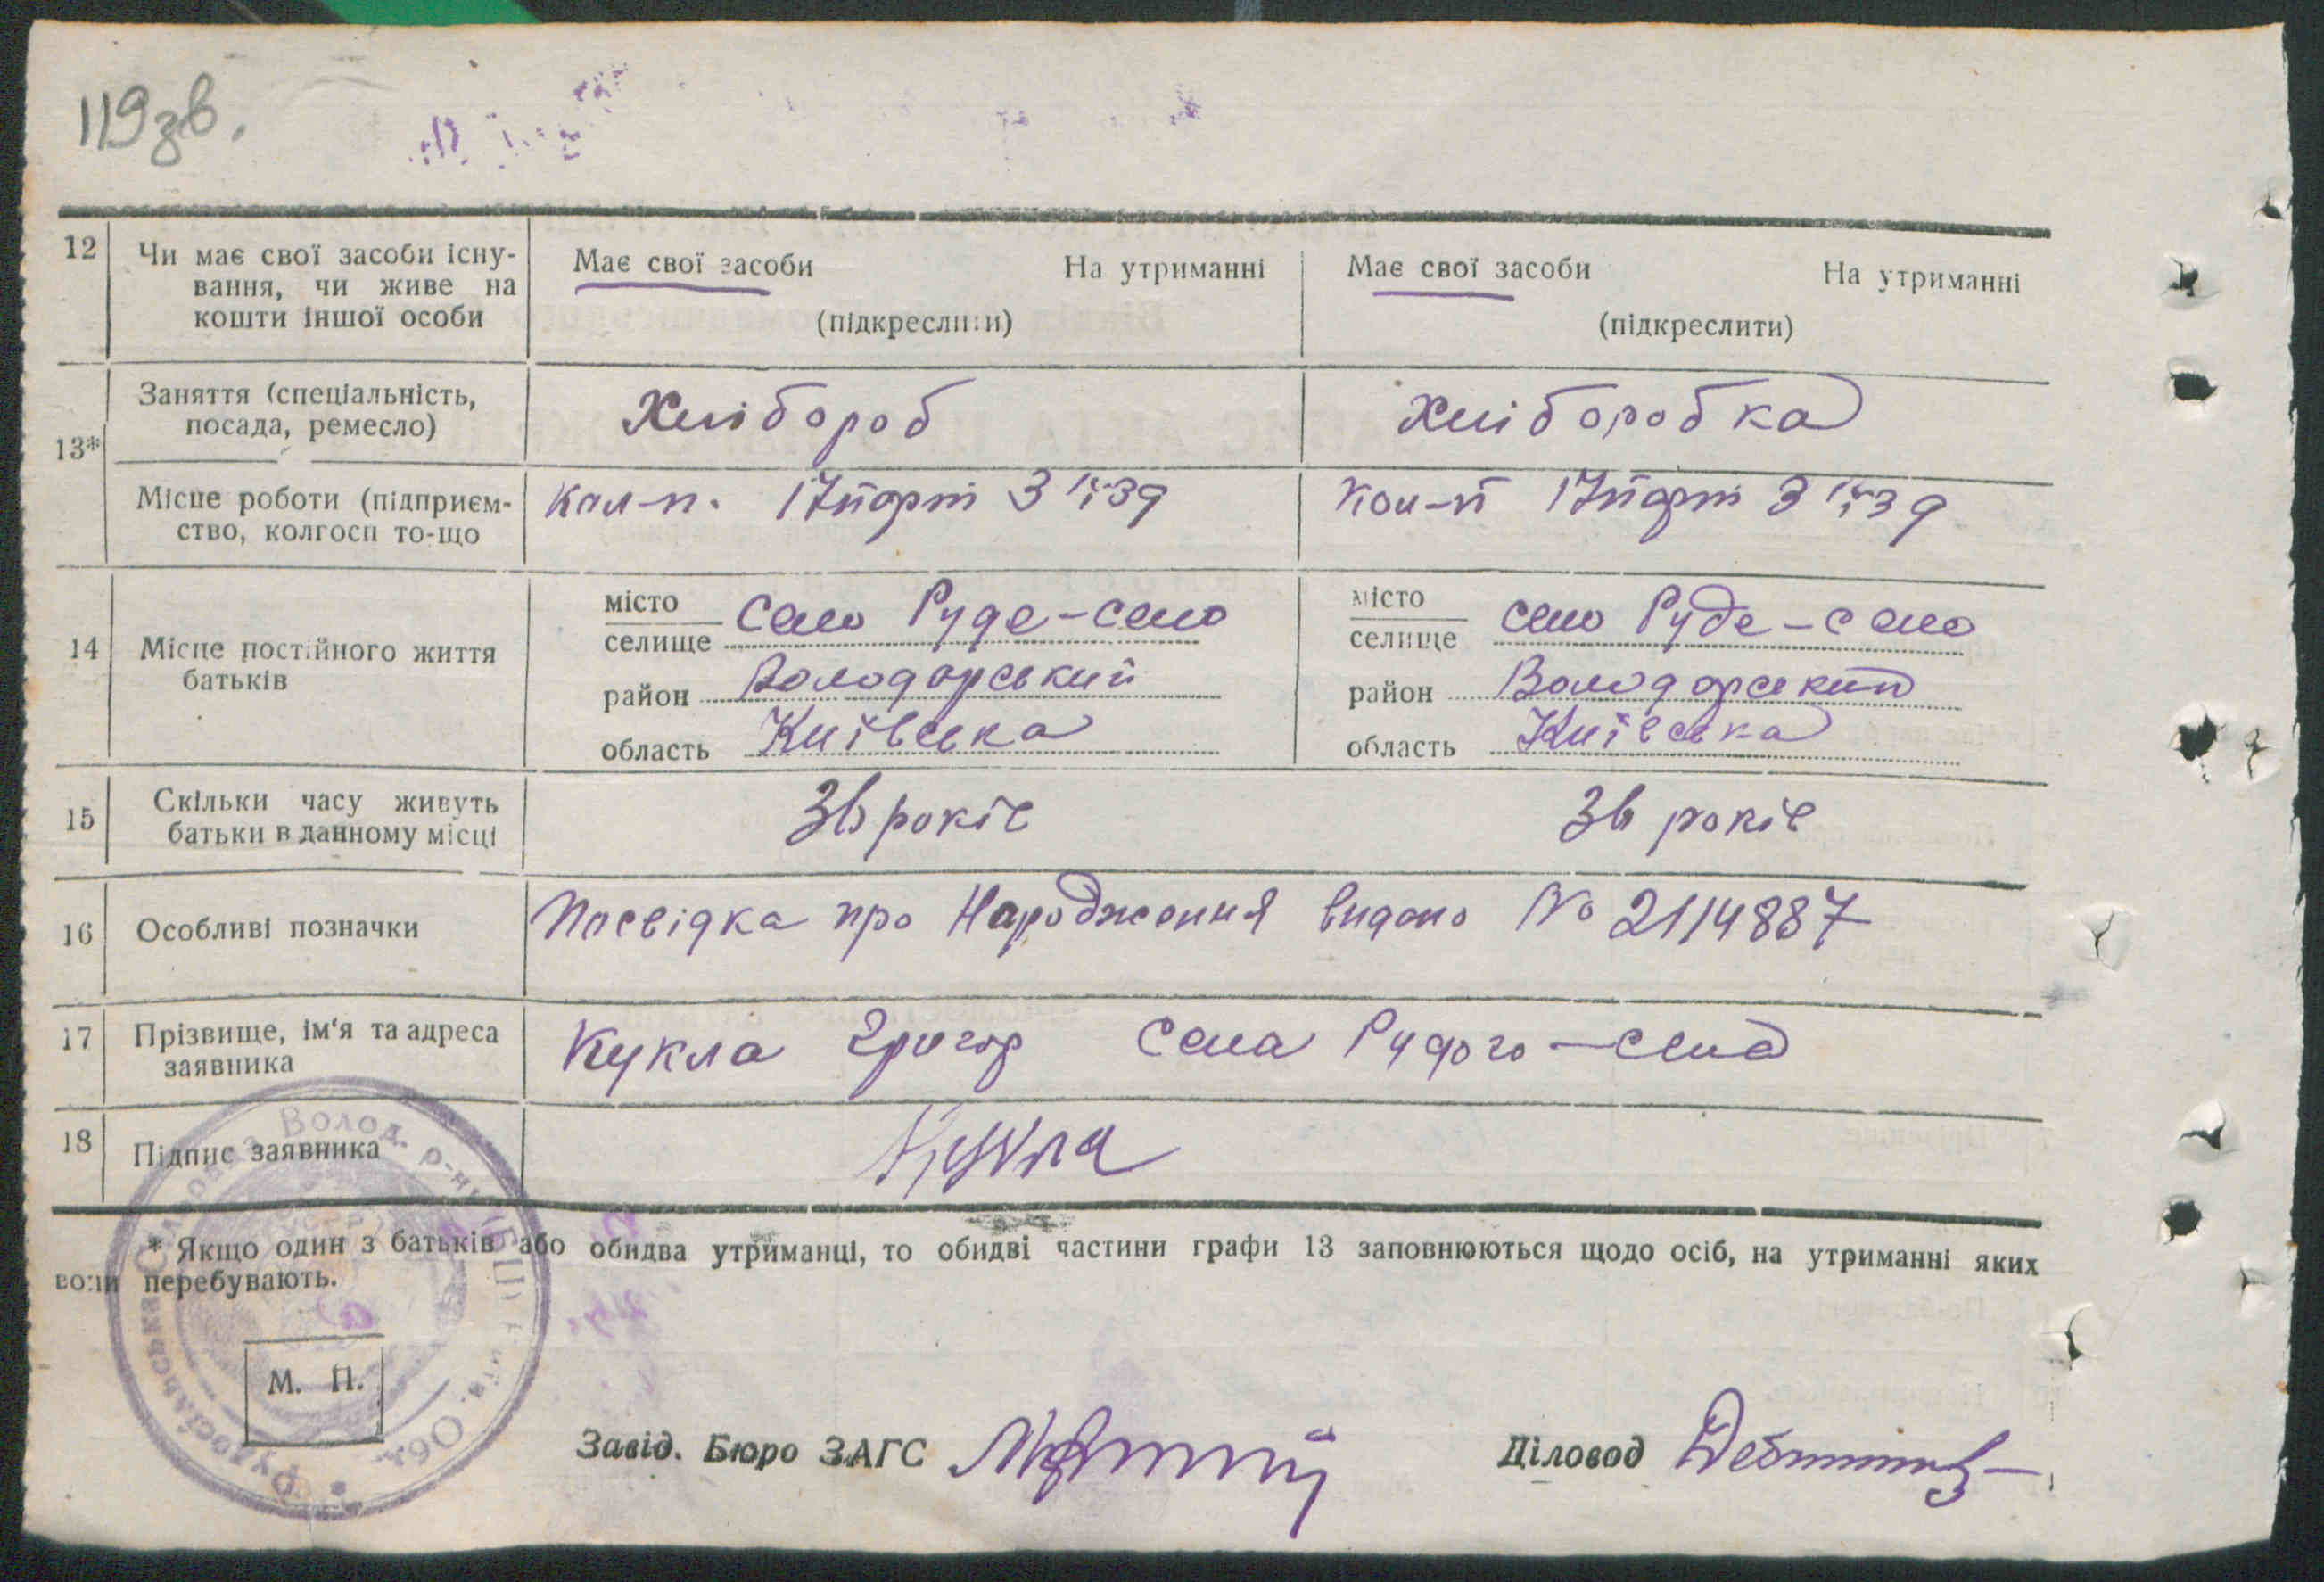 119зв.
12 Чи має свої засоби існу-
вання, чи живе на
кошти іншої особи
Має свої засоби На утриманні
(підкреслити)
Має свої засоби На утриманні
(підкреслити)
13*
Заняття (спеціальність,
посада, ремесло)
Хлібороб
Хліборобка
Місце роботи (підприєм-
ство, колгосп то-що
Кол-п. 17 парт
Кол-п 17 парт
14 Місце постійного життя
батьків
місто
селище село Руде-село
район Володарський
область Київська
місто
селище село Руде-село
район Володарський
область Київська
15 Скільки часу живуть
батьки в данному місці
36 років
36 років
16 Особливі позначки
Посвідка про Народження видано № 2114887
17 Прізвище, ім'я та адреса
заявника
Кукла Григор села Рудого-села
18 Підпис заявника
Кукла
* Якщо один з батьків або обидва утриманці, то обидві частини графи 13 заповнюються щодо осіб, на утриманні яких
вони перебувають.
М. П.
Завід. Бюро ЗАГС
Діловод
Рудосільська Волод. р-ну Обл.